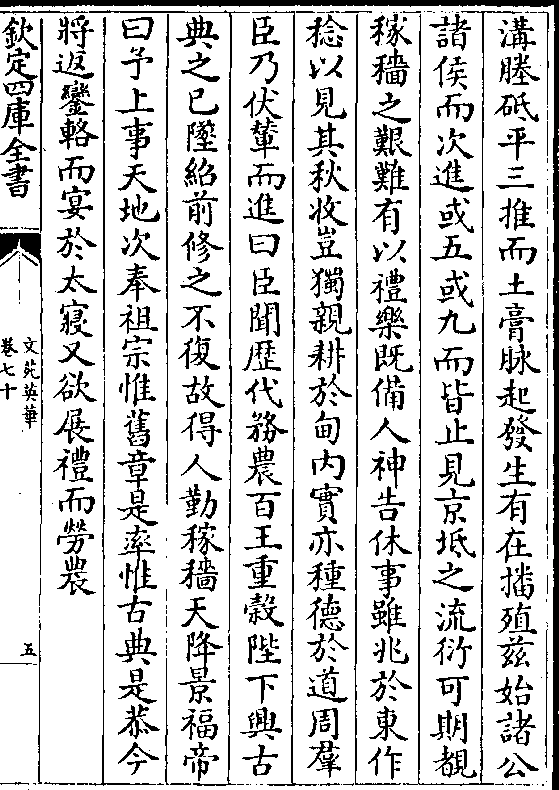 溝塍砥平三推而土膏脉起發生有在播殖兹始諸公
諸侯而次進或五或九而皆止見京坻之流衍可期覩
稼穡之艱難有以禮樂既備人神告休事雖兆於東作
稔以見其秋收豈獨親耕於甸内實亦種德於道周羣
臣乃伏輦而進曰臣聞歴代務農百王重榖陛下興古
典之已墜紹前修之不復故得人勤稼穡天降景福帝
曰予上事天地次奉祖宗惟舊章是率惟古典是恭今
將返鑾輅而宴於太寢又欲展禮而勞農
欽定四庫全書
文苑英華
卷七十
五